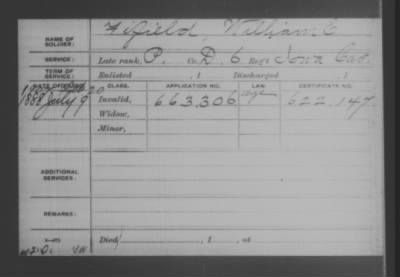 NAME OF SOLDIER: Fifield, William C.
SERVICE: Late rank, P. Co. D, 6 Reg't Iowa Cav.
TERM OF SERVICE: Enlisted , 1 Discharged , 1
DATE OF FILING. CLASS. APPLICATION NO. LAW. CERTIFICATE NO.
1888 July 9 Invalid, 663,306 age 622,147
Widow,
Minor,
ADDITIONAL SERVICES:
REMARKS:
Died , 1 , at